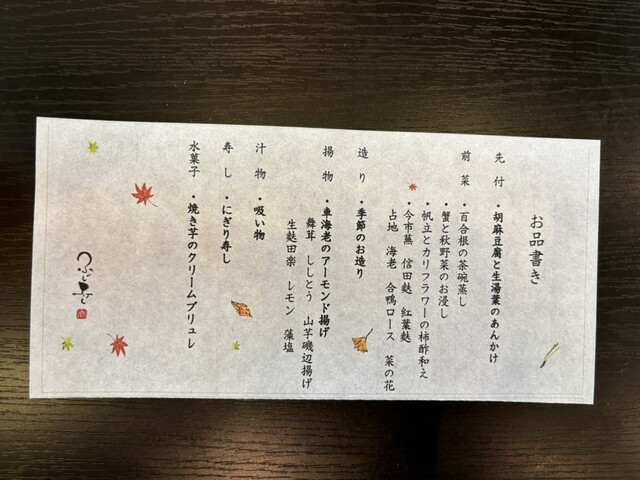 お品書き
先付・胡麻豆腐と生湯葉のあんかけ
前菜・百合根の茶碗蒸し
・蟹と秋野菜のお浸し
・帆立とカリフラワーの柿酢和え
・今市蕪 信田麩 紅葉麩
占地 海老 合鴨ロース 菜の花
造り・季節のお造り
揚物・車海老のアーモンド揚げ
舞茸 ししとう 山芋磯辺揚げ
生麩田楽 レモン 藻塩
汁物・吸い物
寿し・にぎり寿し
水菓子・焼き芋のクリームブリュレ